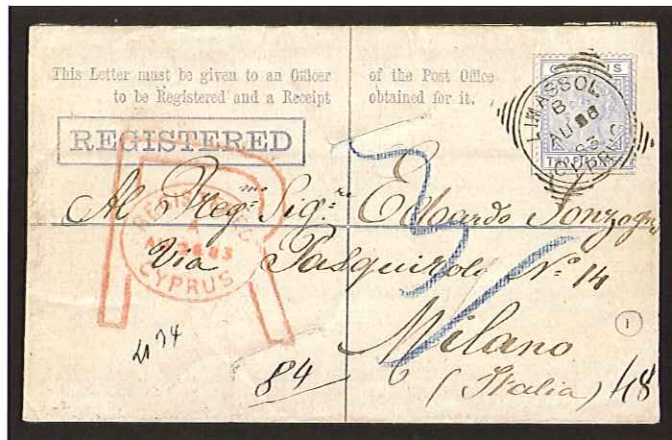 This Letter must be given to an Officer of the Post Office
to be Registered and a Receipt obtained for it.
REGISTERED
CYPRUS
LIMASSOL
B
AU 28
83
CYPRUS
TWO
REGISTERED
A
83
CYPRUS
Al Preg.mo Sig.re Edoardo Sonzogno
Via Pasquirolo No. 14
Milano
(Italia)
84
48
1